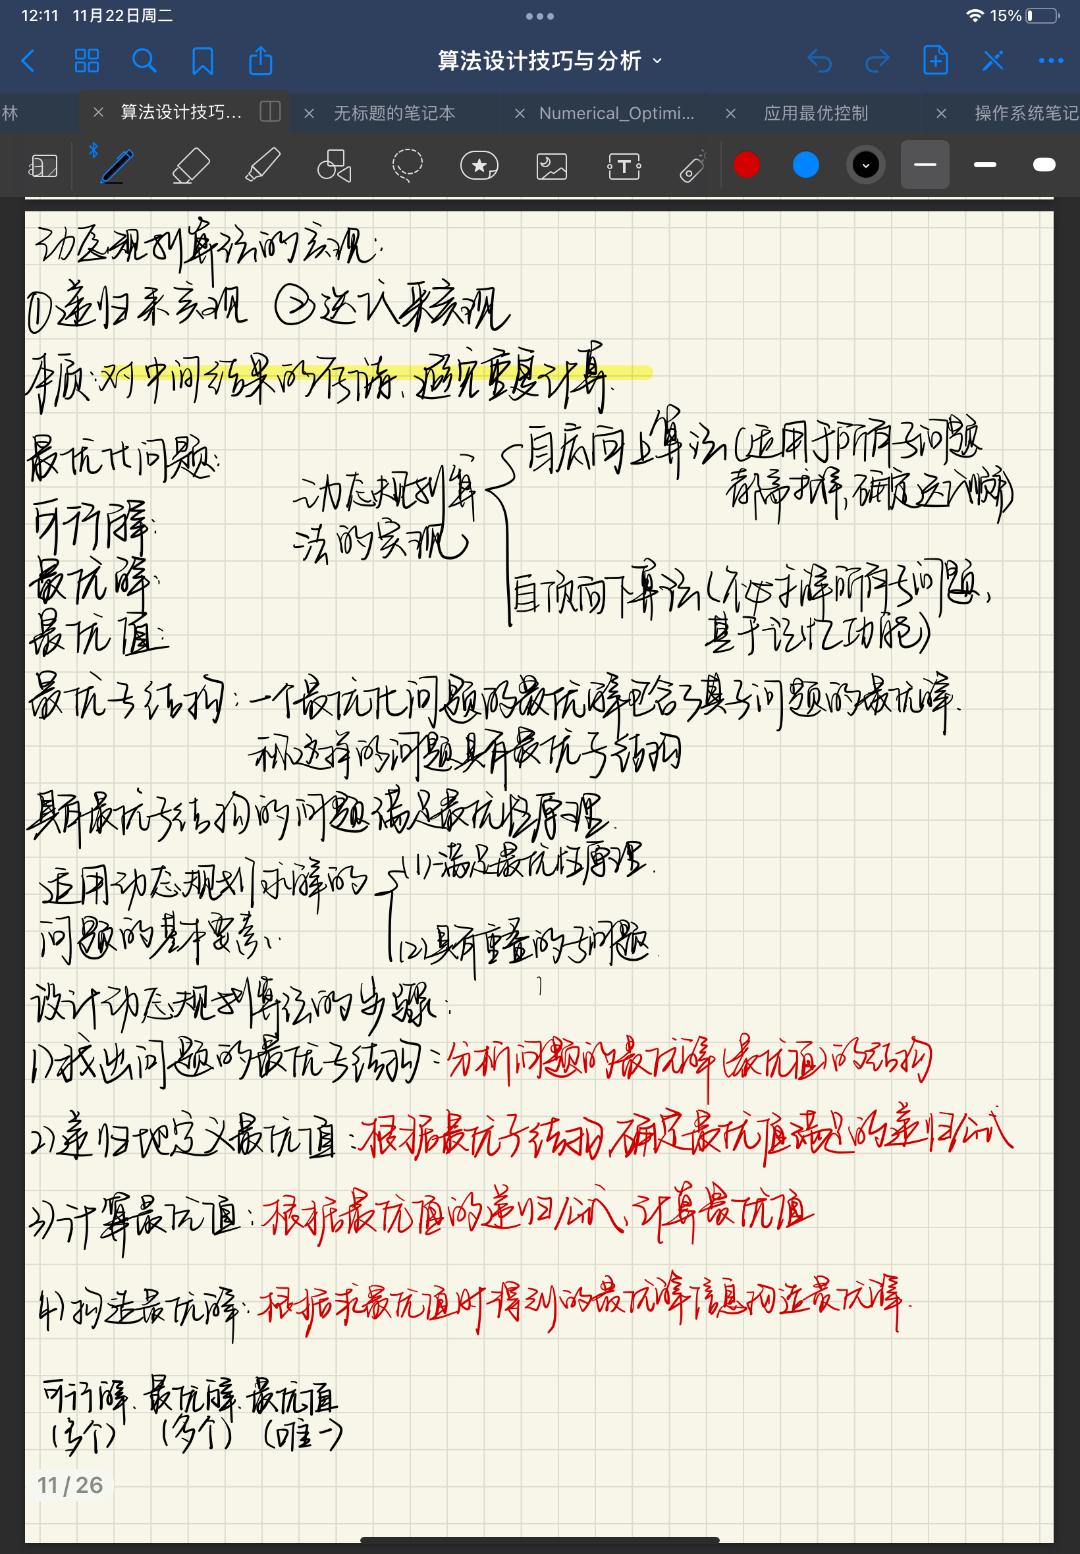 12:11 11月22日周二
15%
算法设计技巧与分析
林
算法设计技巧...
无标题的笔记本
Numerical_Optimi...
应用最优控制
操作系统笔记
动态规划算法的实现:
①递归来实现 ②迭代来实现
本质:对中间结果的存储、避免重复计算.
最优化问题:
可行解:
最优解:
最优值:
动态规划算
法的实现
自底向上算法(适用于所有子问题
都需求解,确定迭代顺序)
自顶向下算法(不必求解所有子问题,
基于记忆功能)
最优子结构:一个最优化问题的最优解包含了其子问题的最优解.
称这样的问题具有最优子结构
具有最优子结构的问题满足最优性原理.
适用动态规划求解的
问题的基本要素:
(1)满足最优性原理.
(2)具有重叠的子问题.
设计动态规划算法的步骤:
1)找出问题的最优子结构:分析问题的最优解(最优值)的结构
2)递归地定义最优值:根据最优子结构,确定最优值满足的递归公式
3)计算最优值:根据最优值的递归公式、计算最优值
4)构造最优解:根据求最优值时得到的最优解信息构造最优解.
可行解、最优解、最优值
(多个) (多个) (唯一)
11 / 26